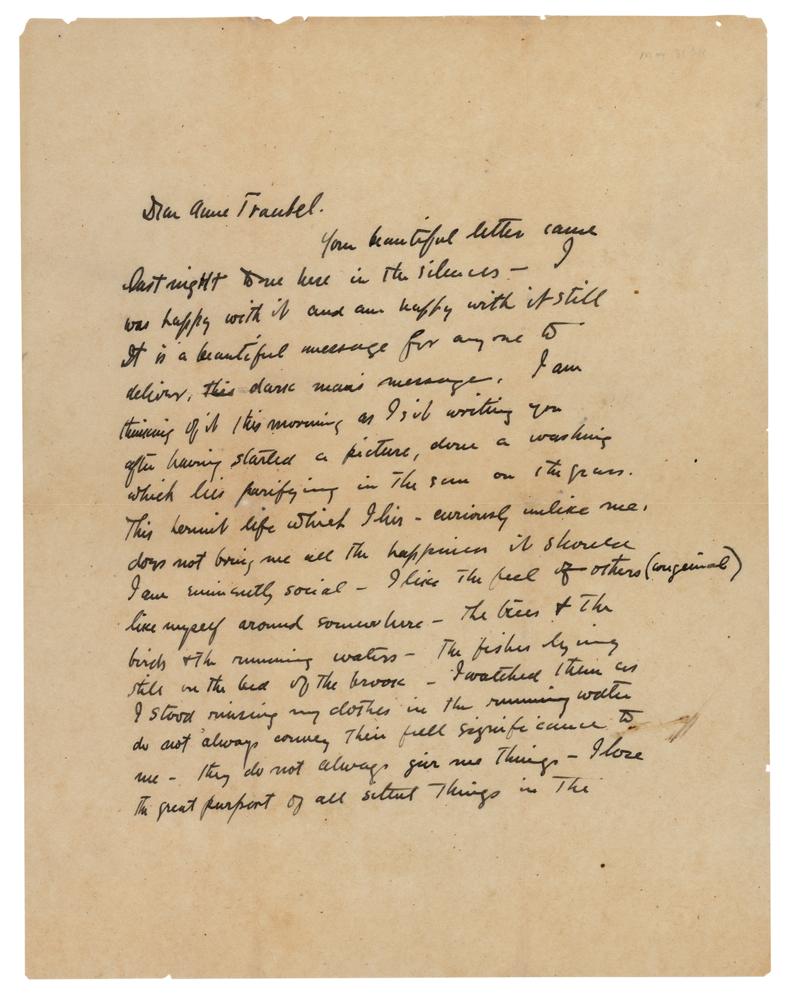 Dear Anne Traubel.
Your beautiful letter came
last night to me here in the silences – I
was happy with it and am happy with it still
It is a beautiful message for any one to
deliver, this dark man's message. I am
thinking of it this morning as I sit writing you
after having started a picture, done a washing
which lies purifying in the sun on the grass.
This hermit life which I live – curiously unlike me,
does not bring me all the happiness it should
I am eminently social – I like the feel of others (congenial)
like myself around somewhere – The trees & the
birds & the running waters – the fishes lying
still on the bed of the brook – I watched them as
I stood rinsing my clothes in the running water
do not always convey their full significance to
me – they do not always give me things – I lose
the great purport of all silent things in the